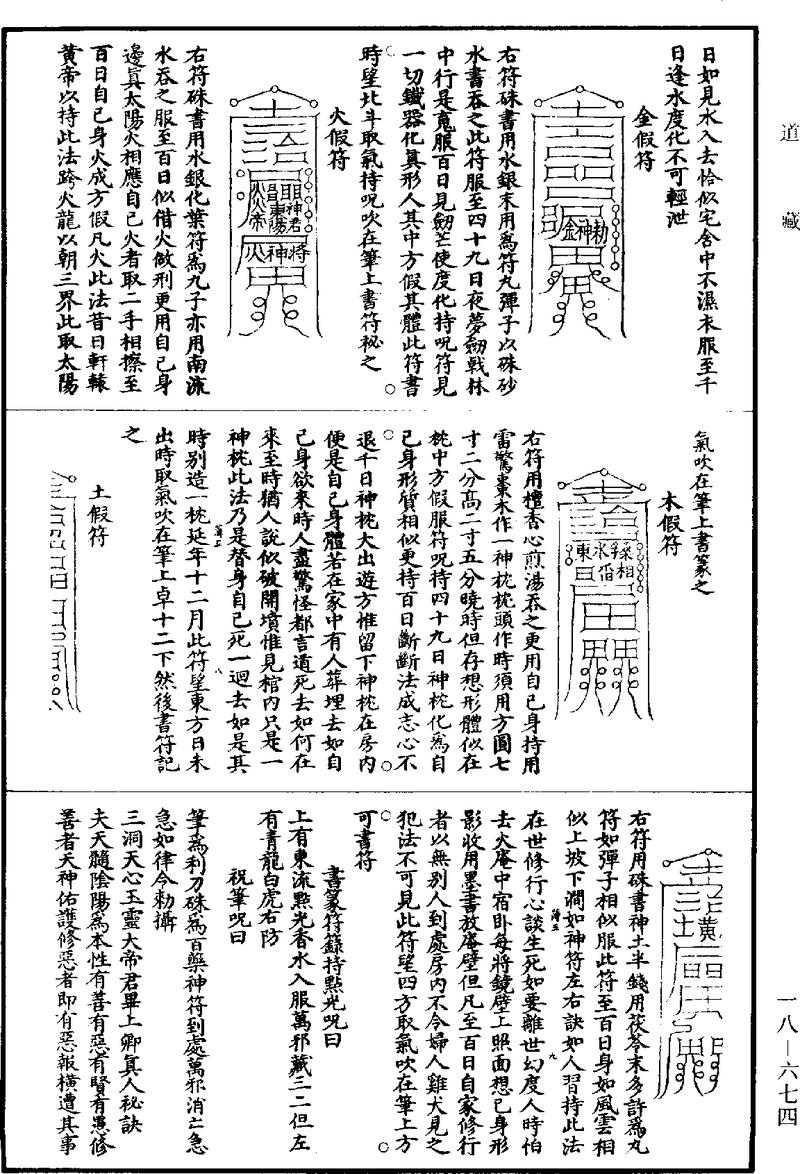 道藏
日如見水入去恰似宅舍中不濕衣服至千
日逢水度化不可輕泄
金假符
勅神金
右符硃書用水銀末用爲符丸彈子以硃砂
水書吞之此符服至四十九日夜夢劒戟林
中行是寬服百日見劒芒使度化持呪符見
一切鐵器化眞形人其中方假其體此符書
時望北斗取氣持呪吹在筆上書符祕之
火假符
神君
東陽
火帝
火神將
右符硃書用水銀化葉符爲丸子亦用南流
水吞之服至百日似借火倣刑更用自己身
邊眞太陽火相應自己火者取二手相擦至
百日自己身火成方假凡火此法昔日軒轅
黃帝以持此法跨火龍以朝三界此取太陽
氣吹在筆上書篆之
木假符
右符用檀香心煎湯吞之更用自己身持用
雷驚棗木作一神枕枕頭作時須用方圓七
寸二分高二寸五分曉時但存想形體似在
枕中方假服符呪持四十九日神枕化爲自
己身形質相似更持百日斷斷法成志心不
退千日神枕大出遊方惟留下神枕在房內
便是自己身體若在家中有人葬埋去如自
己身欲來時人盡驚怪都言道死去如何在
來至時猶人說似破開墳惟見棺內只是一
神枕此法乃是替身自己死一迴去如是其
時別造一枕延年十二月此符望東方日未
出時取氣吹在筆上卓十二下然後書符記
之
土假符
右符用硃書神土半錢用茯苓末多許爲丸
符如彈子相似服此符至百日身如風雲相
似上坡下澗如神符左右訣如人習持此法
在世修行心談生死如要離世幻度人時怕
去火庵中宿卧每將鏡壁上照面想已身形
影收用墨書放庵壁但凡至百日自家修行
者以無別人到處房內不令婦人雞犬見之
犯法不可見此符望四方取氣吹在筆上方
可書符
書篆符籙持點光呪曰
上有東流點光香水入服萬邪藏三二但左
有青龍白虎右防
祝筆呪曰
筆爲利刀硃爲百藥神符到處萬邪消亡急
急如律令勑攝
三洞天心玉靈大帝君畢上卿眞人祕訣
夫天髓陰陽爲本性有善有惡有賢有愚修
善者天神佑護修惡者即有惡報橫遭其事
一八—六七四